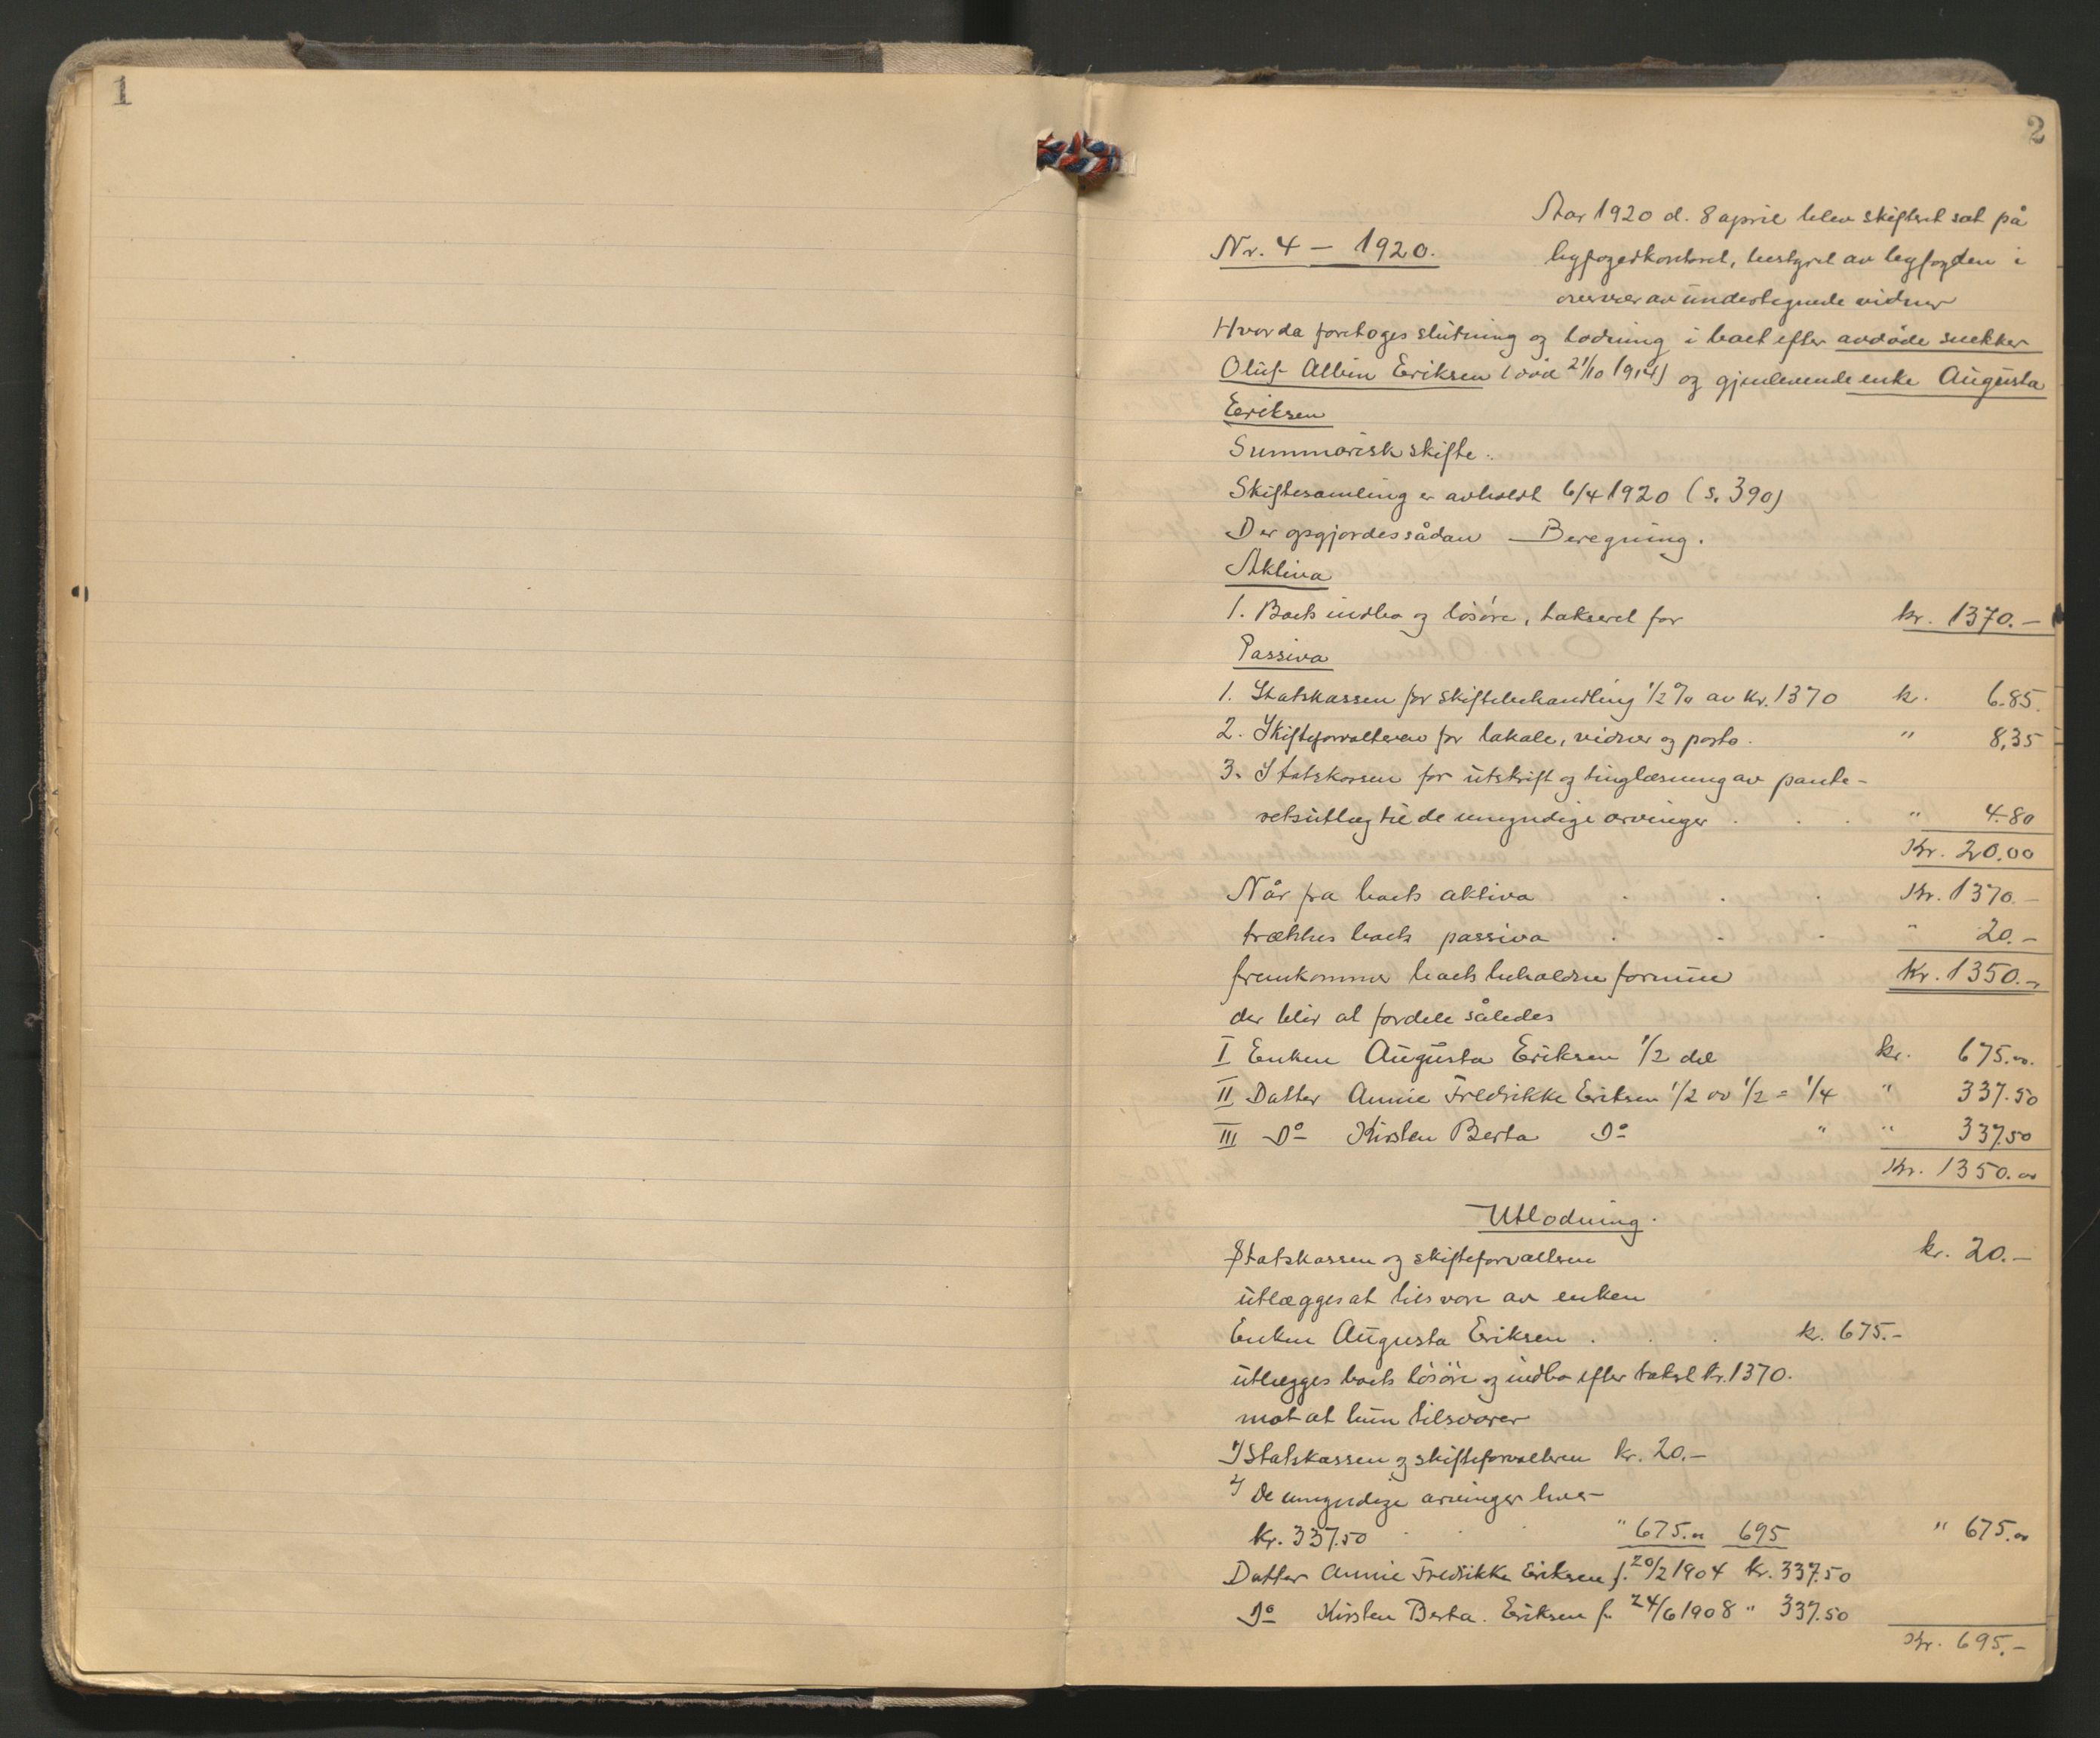 1
2
Aar 1920 d. 8 april blev skifteret sat på
Nr. 4 – 1920.
byfogedkontoret, bestyret av byfogden i
overvær av undertegnede vidner
Hvor da foretoges slutning og lodning i boet efter avdöde snekker
Oluf Albin Eriksen (död 21/10 1914) og gjenlevende enke Augusta
Eriksen
Summarisk skifte.
Skiftesamling er avholdt 6/4 1920 (s. 390)
Der opgjordes sådan Beregning.
Aktiva
1. Boets indbo og lösöre, takseret for kr. 1370.–
Passiva
1. Statskassen for skiftebehandling 1/2 % av kr. 1370 kr. 6.85.
2. Skifteforvalteren for lokale, vidner og porto. " 8,35
3. Statskassen for utskrift og tinglæsning av pante-
retsutlæg til de umyndige arvinger . . . " 4.80
Kr. 20.00
Når fra boets aktiva . . . Kr. 1370.–
trækkes boets passiva . . . " 20.–
fremkommer boets beholdne formue Kr. 1350.–
der blir at fordele således
I Enken Augusta Eriksen 1/2 del kr. 675.00.
II Datter Annie Fredrikke Eriksen 1/2 av 1/2 = 1/4 " 337.50
III Do Kirsten Berta Do " " 337.50
Kr. 1350.00
Utlodning.
Statskassen og skifteforvalteren kr. 20.–
utlægges at tilsvare av enken
Enken Augusta Eriksen . . . kr. 675.–
utlægges boets lösöre og indbo efter takst kr. 1370.
mot at hun tilsvarer
1) Statskassen og skifteforvalteren kr. 20.–
2) De umyndige arvinger hver
kr. 337.50 . . " 675.00 695 " 675.00
Datter Annie Fredrikke Eriksen f. 20/2 1904 kr. 337.50
Do Kirsten Berta. Eriksen f. 24/6 1908 " 337.50
Kr. 695.–